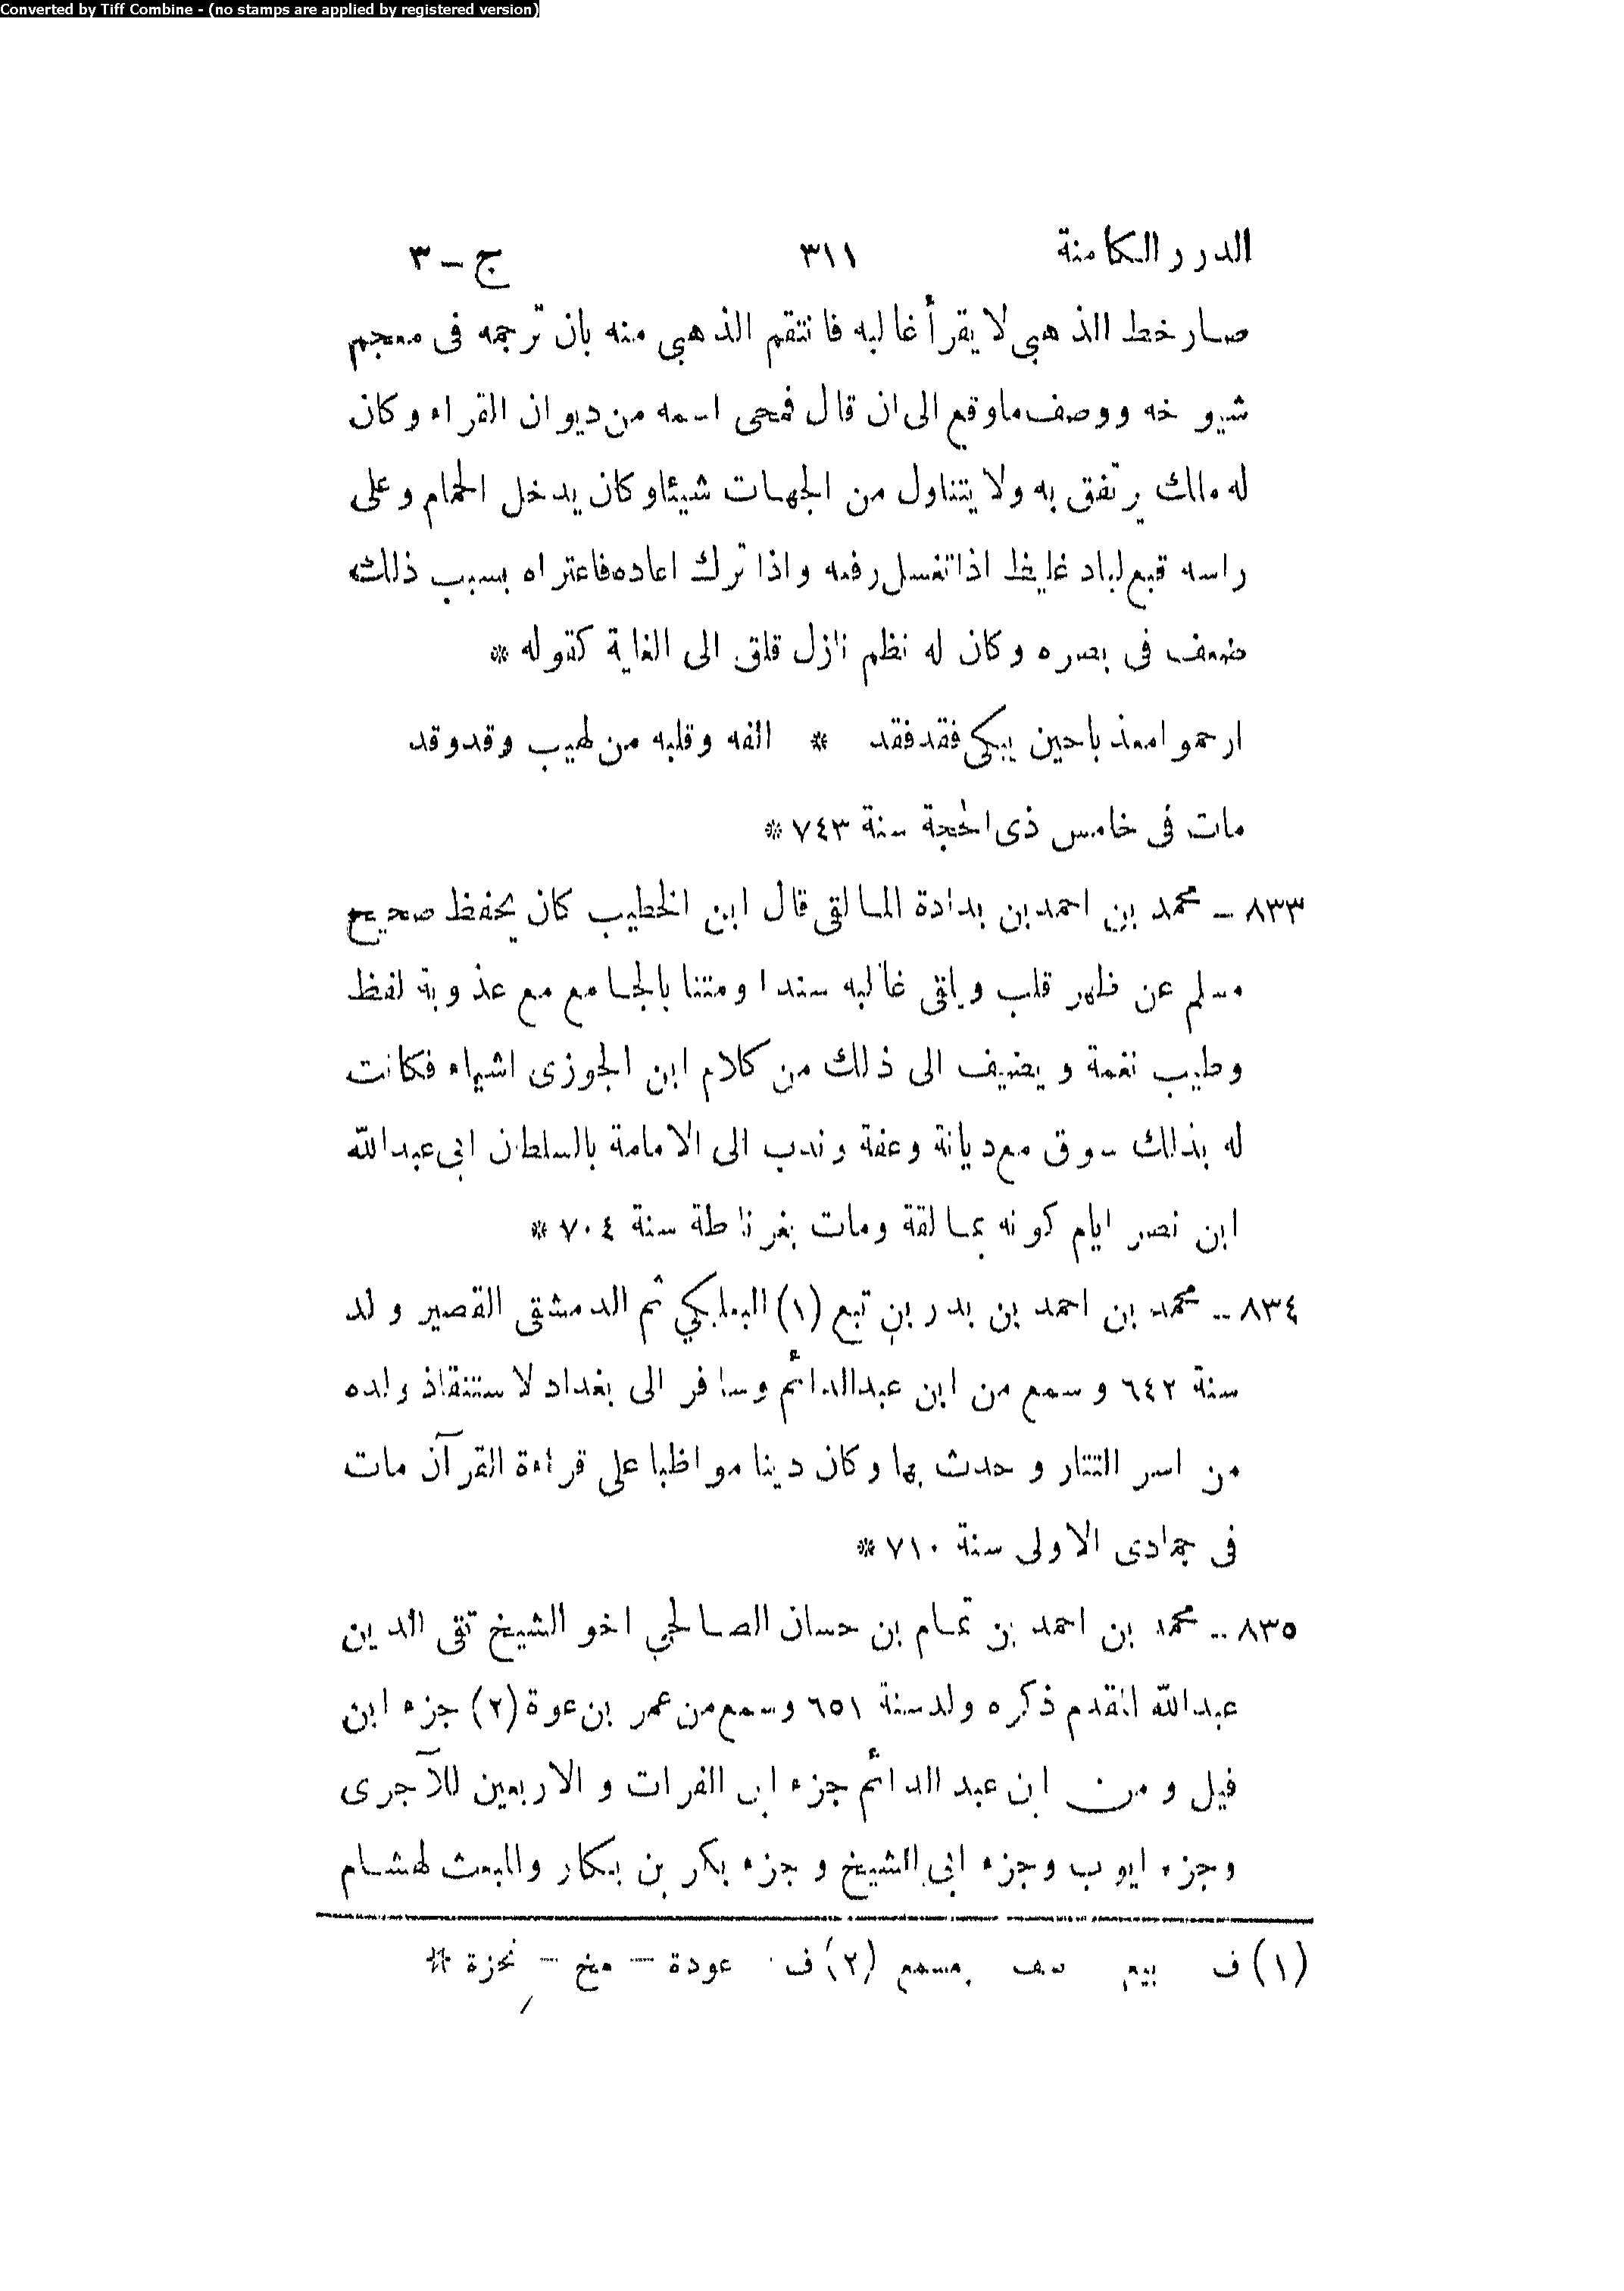 Converted by Tiff Combine - (no stamps are applied by registered version)
الدرر الكامنة ٣١١ ج - ٣
صار خط الذهبى لا يقرأ غالبه فانتقم الذهبى منه بان ترجمه فى معجم
شيوخه ووصف ماوقع الى ان قال فمحى اسمه من ديوان القراء وكان
له ملك يرتفق به ولا يتناول من الجهات شيئا وكان يدخل الحمام وعلى
راسه قبع لباد غليظ اذا تغسل رفعه واذا ترك اعاده فاعتراه بسبب ذلك
ضعف فى بصره وكان له نظم نازل قلق الى الغاية كقوله *
ارحموا معذبا حين يبكى فقد فقد * الفه وقلبه من لهيب وقد وقد
مات فى خامس ذى الحجة سنة ٧٤٣ *
٨٣٣ - محمد بن احمد بن بدادة المالقى قال ابن الخطيب كان يحفظ صحيح
مسلم عن ظهر قلب ويلقى غالبه سندا ومتنا بالجامع مع عذوبة لفظ
وطيب نغمة ويضيف الى ذلك من كلام ابن الجوزى اشياء فكانت
له بذلك سوق مع ديانة وعفة وندب الى الامامة بالسلطان ابى عبدالله
ابن نصر ايام كونه بمالقة ومات بغرناطة سنة ٧٠٤ *
٨٣٤ - محمد بن احمد بن بدر بن تبع (١) البعلبكي ثم الدمشقى القصير ولد
سنة ٦٤٢ وسمع من ابن عبدالدائم وسافر الى بغداد لاستنقاذ ولده
من اسر التتار وحدث بها وكان دينا مواظبا على قراءة القرآن مات
فى جمادى الاولى سنة ٧١٠ *
٨٣٥ - محمد بن احمد بن تمام بن حسان الصالحي اخو الشيخ تقى الدين
عبدالله المقدم ذكره ولد سنة ٦٥١ وسمع من عمر بن عوة (٢) جزء ابن
فيل ومن ابن عبد الدائم جزء ابن الفرات والاربعين للآجرى
وجزء ايوب وجزء ابي الشيخ وجزء بكر بن بكار والبعث لهشام
(١) ف (٢) ف عودة - مخ -